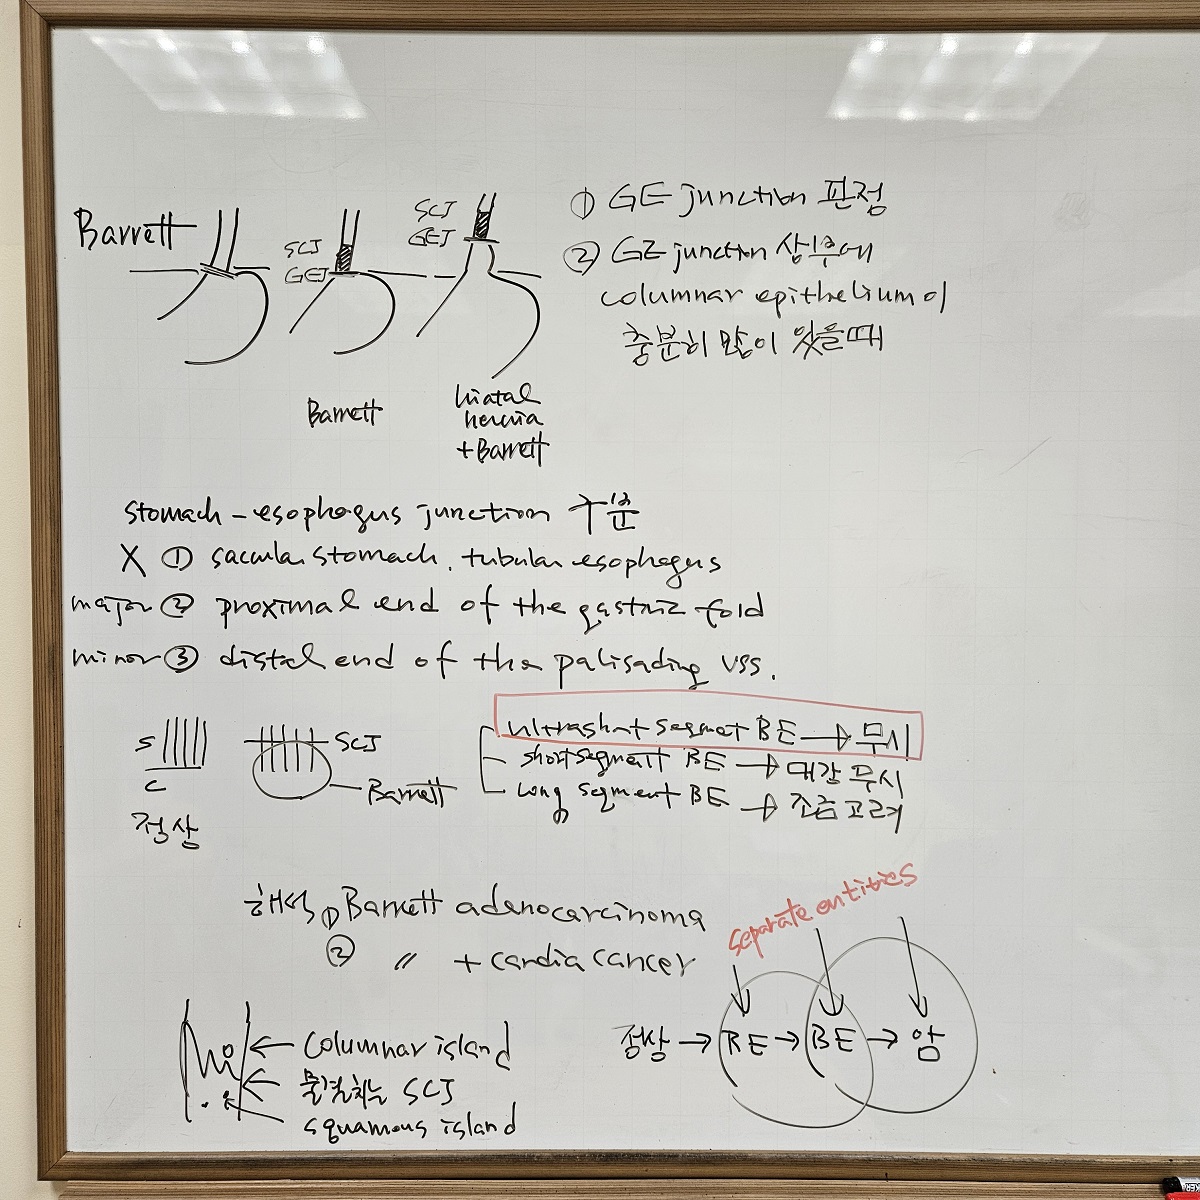 Barrett
SCJ
GEJ
SCJ
GEJ
Barrett
hiatal
hernia
+Barrett
① GE junction 판정
② GE junction 상부에
columnar epithelium이
충분히 많이 있을때
stomach - esophagus junction 구분
X ① saccular stomach, tubular esophagus
major ② proximal end of the gastric fold
minor ③ distal end of the palisading vss.
S
C
정상
SCJ
Barrett
ultrashort segment BE → 무시
short segment BE → 대강 무시
long segment BE → 조금 고려
해석 ① Barrett adenocarcinoma
② 〃 + cardia cancer
separate entities
정상 → RE → BE → 암
columnar island
물결치는 SCJ
squamous island